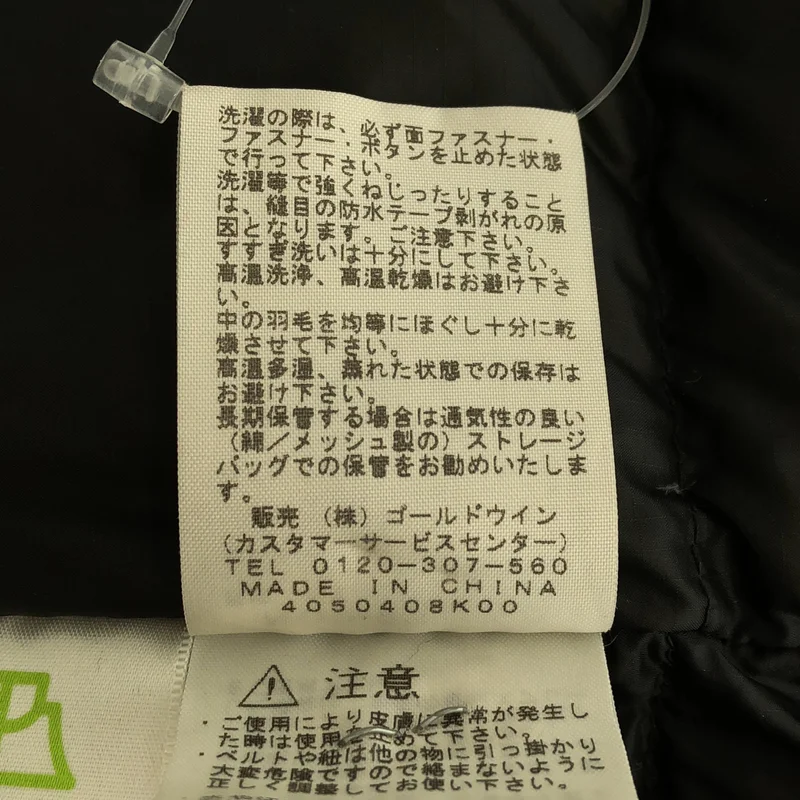 洗濯の際は、必ず面ファスナー・
ファスナー・ボタンを止めた状態
で行って下さい。
洗濯等で強くねじったりすること
は、縫目の防水テープ剥がれの原
因となります。ご注意下さい。
すすぎ洗いは十分にして下さい。
高温洗浄、高温乾燥はお避け下さ
い。
中の羽毛を均等にほぐし十分に乾
燥させて下さい。
高温多湿、蒸れた状態での保存は
お避け下さい。
長期保管する場合は通気性の良い
（綿／メッシュ製の）ストレージ
バッグでの保管をお勧めいたしま
す。
販売 （株）ゴールドウイン
（カスタマーサービスセンター）
TEL 0120-307-560
MADE IN CHINA
4050408K00
注意
・ご使用により皮膚に異常が発生し
た時は使用を止めて下さい。
・ベルトや紐は他の物に引っ掛かり
大変危険ですので絡まないように
正しく調整してお使い下さい。